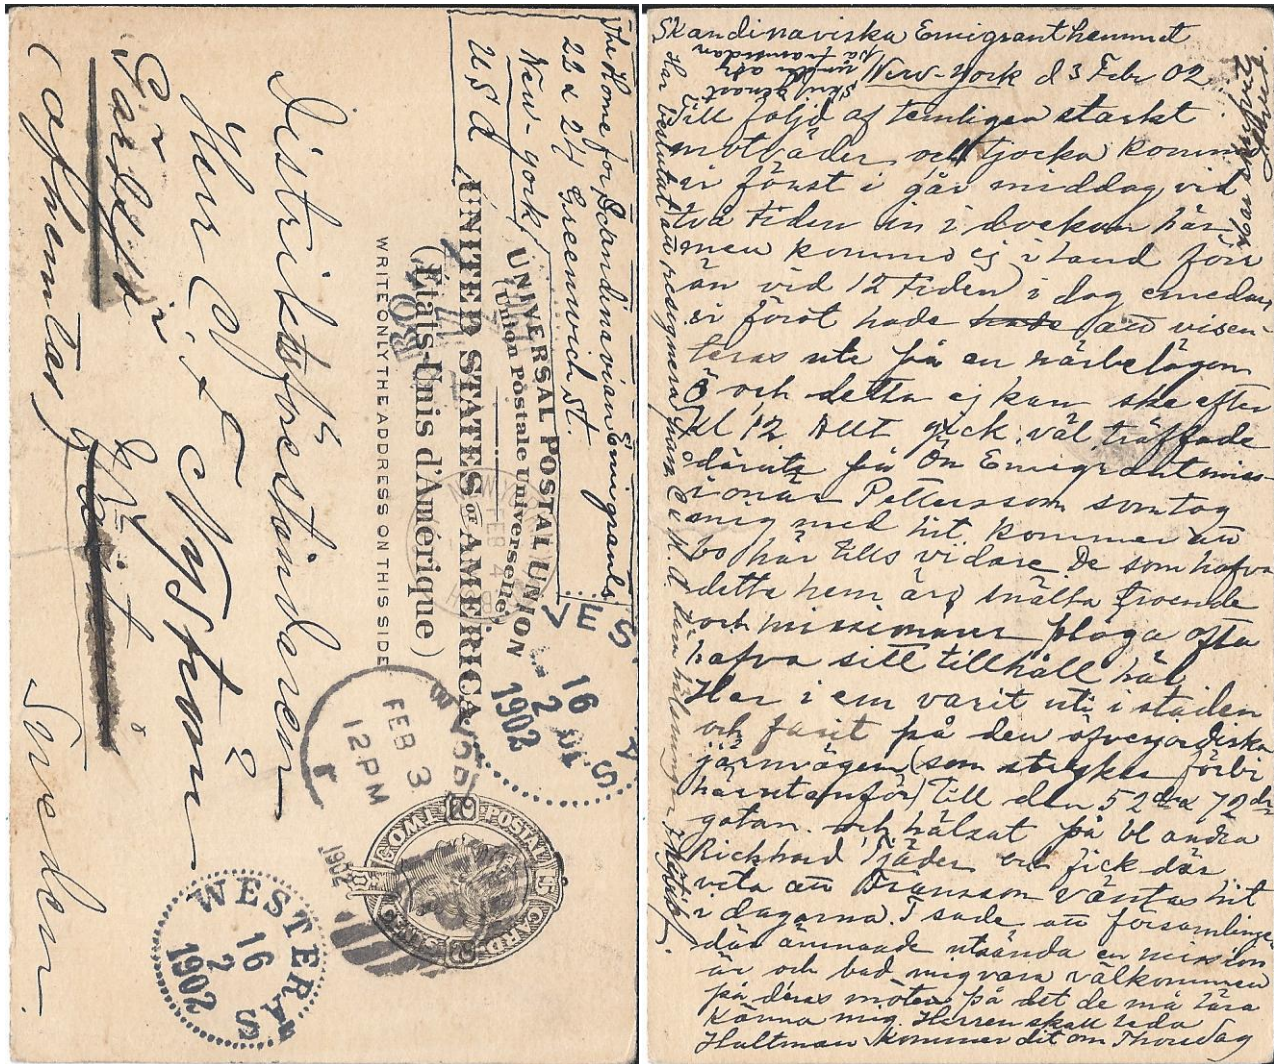 The Home for Scandinavian Emigrants
22 & 24 Greenwich St.
New-york
U S a
UNIVERSAL POSTAL UNION
(Union Postale Universelle)
UNITED STATES OF AMERICA.
(États-Unis d'Amérique)
WRITE ONLY THE ADDRESS ON THIS SIDE
FEB 3
12 PM
1902
POSTAL CARD
WESTERÅS
16
2
1902
WESTERÅS
16
2
1902
Distriktsföreståndaren
Herr C. F. Nyström
Sweden.
Skandinaviska Emigranthemmet
New-York d 3 Febr 02
Till följd af temligen starkt
motväder och tjocka kommo
vi först i går middag vid
två tiden in i dockan här
men kommo ej i land förr
än vid 12 tiden i dag emedan
vi först hade hade att visen-
teras ute på en närbelägen
ö och detta ej kan ske efter
kl 12 Allt gick väl träffade
därute på Ön Emigrantmiss-
ionär Pettersson som tog
mig med hit. Kommer att
bo här tills vidare De som hafva
detta hem äro snälla troende
och missionärer pläga ofta
hafva sitt tillhåll här
Har i em varit uti i staden
och farit på den öfverjordiska
järnvägen (som stryker förbi
härutanför) till den 52dra 72dra
gatan. och hälsat på bl andra
Rickhard Tjäder och fick där
veta att Fransson väntas hit
i dagarna. T sade att församlingen
där ämnade utsända en mission
är och bad mig vara välkommen
på deras möten på det de må lära
känna mig. Herren skall leda
Hultman kommer dit om Thorsdag
Har beslutat att resignera
Skrif genast
under adr
på framsidan